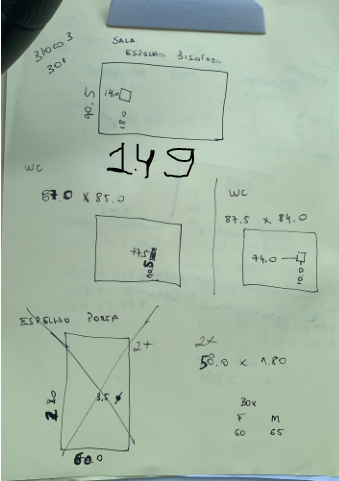 BLOCO 3
301
SALA
ESPELHO BISOTADO
90.5
18.0
149
WC
67.0 x 85.0
77.5
WC
87.5 x 84.0
74.0
ESPELHO PORTA
2x
3.5
60.0
2x
58.0 x 1.80
Box
F M
60 65